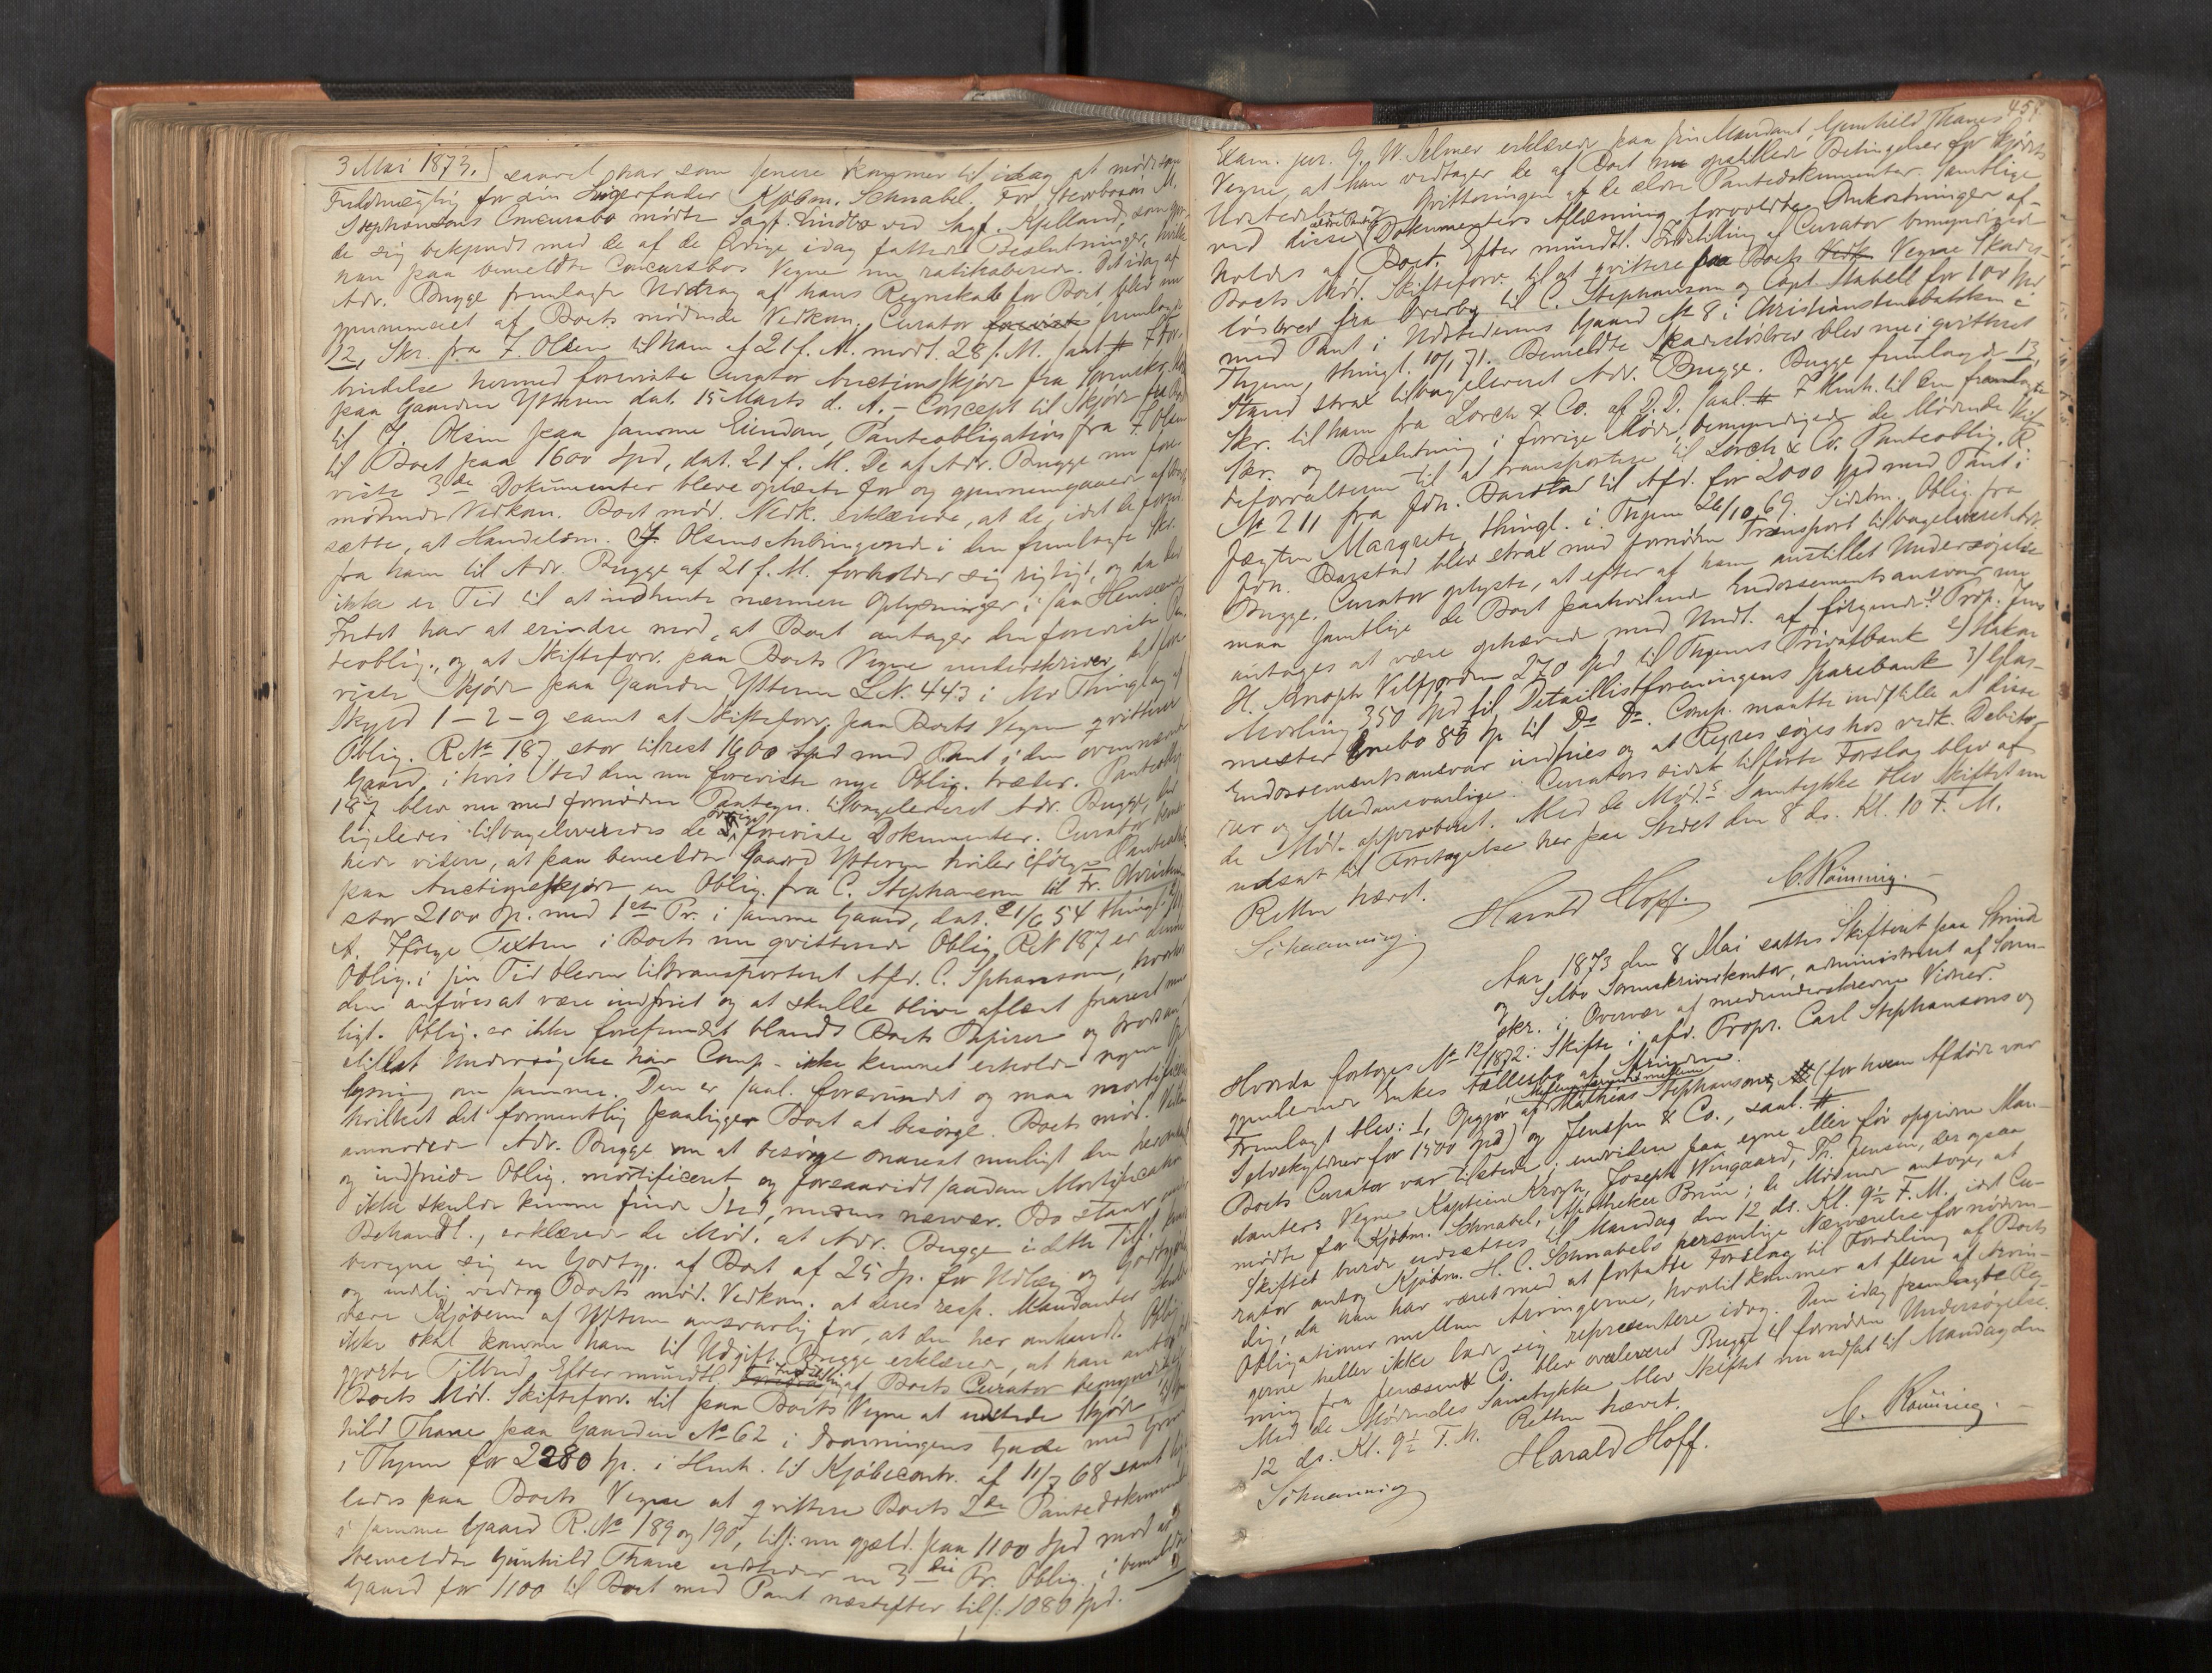 3 Mai 1873. saavel har som senere kommer til idag at møde som
Fuldmægtig for sin Svigerfader Kjøbm. Schnabel. For Stervboam M.
Stephansons Concursbo mødte Sagf. Lindboe ved Sagf. Kjelland, som gjor-
de sig bekjendt med de af de Øvrige idag fattede Beslutninger, hvilke
han paa bemeldte Concursbos Vegne nu ratihaberede. Det idag af
Adv. Bugge fremlagte Uddrag af hans Regnskab for Boet blev nu
gjennemseet af Boets mødende Vedkom. Curator fremlagde
12, Skr. fra J. Olsen til ham af 21 f. M. modt. 28 f. M. saal. # I For-
bindelse hermed foreviste Curator Auctionsskjøde fra
paa Gaarden Ytteren dat. 15 Marts d. A. - Concept til Skjøde fra Boet
til J. Olsen paa samme Eiendom, Panteobligation fra J. Olsen
til Boet paa 1600 Spd, dat. 21 f. M. De af Adv. Bugge nu fore-
viste 3de Dokumenter bleve oplæste for og gjennemgaaede af Boets
mødende Vedkom. Boet mød. Vedk. erklærede, at de, idet de forud-
sætte, at Handelsm. J. Olsens Anbringende i den fremlagte Skr.
fra ham til Adv. Bugge af 21 f. M. forholder sig rigtigt, og da der
ikke er Tid til at indhente nærmere Oplysninger i saa Henseende
Intet har at erindre mod, at Boet antager den foreviste Pan-
teoblig., og at Skifteforv. paa Boets Vegne underskriver det fore-
viste Skjøde paa Gaarden Ytteren L.N. 443 i Mo Thinglag af
Skyld 1 - 2 - 9 samt at Skifteforv. paa Boets Vegne qvitterer
Oblig. R.№ 187 stor tilrest 1600 Spd med Pant i den ovennævnte
Gaard, i hvis Sted den nu foreviste nye Oblig. træder. Panteoblig
187 blev nu med fornøden Paategn. tilbageleveret Adv. Bugge, der
ligeledes tilbageleveredes de foreviste Dokumenter. Curator bemær-
kede videre, at paa bemeldte Gaard Ytteren hviler ifølge Panteattest
paa Auctionsskjøde en Oblig. fra C. Stephanson til Fr. Christensen
stor 2100 Sp. med 1ste Pr. i samme Gaard, dat. 21/6 54 thingl.
A. Ifølge Texten i Boets nu qvitterede Oblig. R.N 187 er denne
Oblig. i sin Tid bleven tiltransporteret Afd. C. Stephanson, hvorhos
den anføres at være indfriet og at skulle blive aflæst snarest mu-
ligt. Oblig. er ikke forefundet blandt Boets Papirer og trods an-
stillet Undersøgelse har Comp. ikke kunnet erholde nogen Op-
lysning om samme. Den er saal. forsvundet og maa mortificeres
hvilket det formentlig paaligger Boet at besørge. Boets mød. Vedkom.
anmodede Adv. Bugge om at besørge snarest muligt den heromhandl.
og indfriede Oblig. mortificeret og forsaavidt saadan Mortification
ikke skulde kunne finde Sted, medens nærvær. Bo staar under
Behandl., erklærede de Mød. at Adv. Bugge i dette Tilf. kunde
beregne sig en Godtgj. af Boet af 25 Sp. for Udlæg og Godtgjørelse
og endlig vedtog Boets mød. Vedkom. at deres resp. Mandanter skulle
være Kjøberen af Ytteren ansvarlig for, at den her omhandl. Oblig
ikke skal komme ham til Udgift. Bugge erklærede, at han antog det
gjorte Tilbud. Efter mundtl. Indstilling af Boets Curator bemyndigede
Boets Mød. Skifteforv. til paa Boets Vegne at udstede Skjøde til Gun-
hild Thane paa Gaarden № 62 i Dronningens Gade med Grund
i Thjem for 2280 Sp. i Henh. til Kjøbecontr. af 11/7 68 samt lige-
ledes paa Boets Vegne at qvittere Boets 2de Pantedokumenter
i samme Gaard R.№ 189 og 190, tils: nu gjæld. paa 1100 Spd mod at
bemeldte Gunhild Thane udsteder en 3die Pr. Oblig. i bemeldte
Gaard for 1100 til Boet med Pant næstefter tils: 1080 Spd.
458
Exam. jur. G. W. Selmer erklærede paa sin Mandant, Gunhild Thanes
Vegne, at han vedtager de af Boet nu opstillede Betingelser for Skjødets
Udstedelse og Qvitteringen af de ældre Pantedokumenter. Samtlige
ved disse Dokumenters Aflæsning forvoldte Omkostninger af-
holdes af Boet. Efter mundtl. Indstilling af Curator bemyndigede
Boets Mød. Skifteforv. til at qvittere paa Boets Vegne Skades-
løsbrev fra Overby til C. Stephanson og Capt. Stabell for 100 Spd
med Pant i Udstederens Gaard № 8 i Christianstensbakken i
Thjem, thingl. 10/1 71. Bemeldte Skadesløsbrev blev nu i qvitteret
Stand strax tilbageleveret Adv. Bugge. Bugge fremlagde 13,
Skr. til ham fra Lorck & Co. af D. D. saal. # I Henh. til den fremlagte
Skr. og Beslutning i forrige Møde, bemyndigede de Mødende Skif-
teforvalteren til at transportere til Lorck & Co. Panteoblig. R
№ 211 fra Jdn. Barstad til Afd. for 2000 Spd med Pant i
Jægten Margrete, thingl. i Thjem 26/10 69. Sidstn. Oblig. fra
Jdn. Barstad blev strax med fornøden Transport tilbageleveret Adv.
Bugge. Curator oplyste, at efter af ham anstillet Undersøgelse
maa samtlige de Boet paahvilende Endossementsansvar nu
antages at være ophævede med Undt. af følgende: 1) Prop. Jens
H. Knoph Velfjorden 270 Spd til Thjems Privatbank 2) Hakon
Morling 350 Spd til Detaillistforeningens Sparebank 3) Glas-
mester Enebo 80 Sp til Do Do. Comp. maatte indstille at disse
Endossementsansvar indfries og at Regres søges hos vedk. Debito-
rer og Medansvarlige. Curators sidst tilførte Forslag blev af
de Mød. approberet. Med de Mød.s Samtykke blev Skiftet nu
udsat til Foretagelse her paa Stedet den 8 ds. Kl. 10 F. M.
Retten hævet.
Harald Hoff. C. Rønning.
Schwanning.
Aar 1873 den 8 Mai sattes Skifteret paa Strinde
og Selbo Sorenskriverkontor, administreret af Soren-
skr. i Overvær af medunderskrevne Vidner.
Hvorda foretoges № 12/1872: Skifte i afd. Propr. Carl Stephansons og
gjenlevende Enkes Fællesbo af Strinden.
Fremlagt blev: 1, Opgjør Mathias Stephanson (for hvem Afdøde var
Selvskyldner for 1500 Spd) og Jenssen & Co., saal. #
Boets Curator var tilstede; endvidere paa egne eller før opgivne Man-
danters Vegne Kaptein Krogh, Joseph Wingaard, Th. Jensen, der ogsaa
mødte for Kjøbm. Schnabel, Apotheker Bruun; de Mødende antoge, at
Skiftet burde udsættes til Mandag den 12 ds. Kl. 9½ F. M. idet Cu-
rator antog Kjøbm. H. C. Schnabels personlige Nærværelse for nødven-
dig, da han har været med at forfatte Forslag til Fordeling af Boets
Obligationer mellem Arvingerne, hvortil kommer at flere af Arvin-
gerne heller ikke lade sig repræsentere idag. Den idag fremlagte Reg-
ning fra Jenssen & Co. blev overleveret Bugge til fornøden Undersøgelse.
Med de Mødendes Samtykke blev Skiftet nu udsat til Mandag den
12 ds. Kl. 9½ F. M. Retten hævet.
Harald Hoff. C. Rønning.
Schwanning